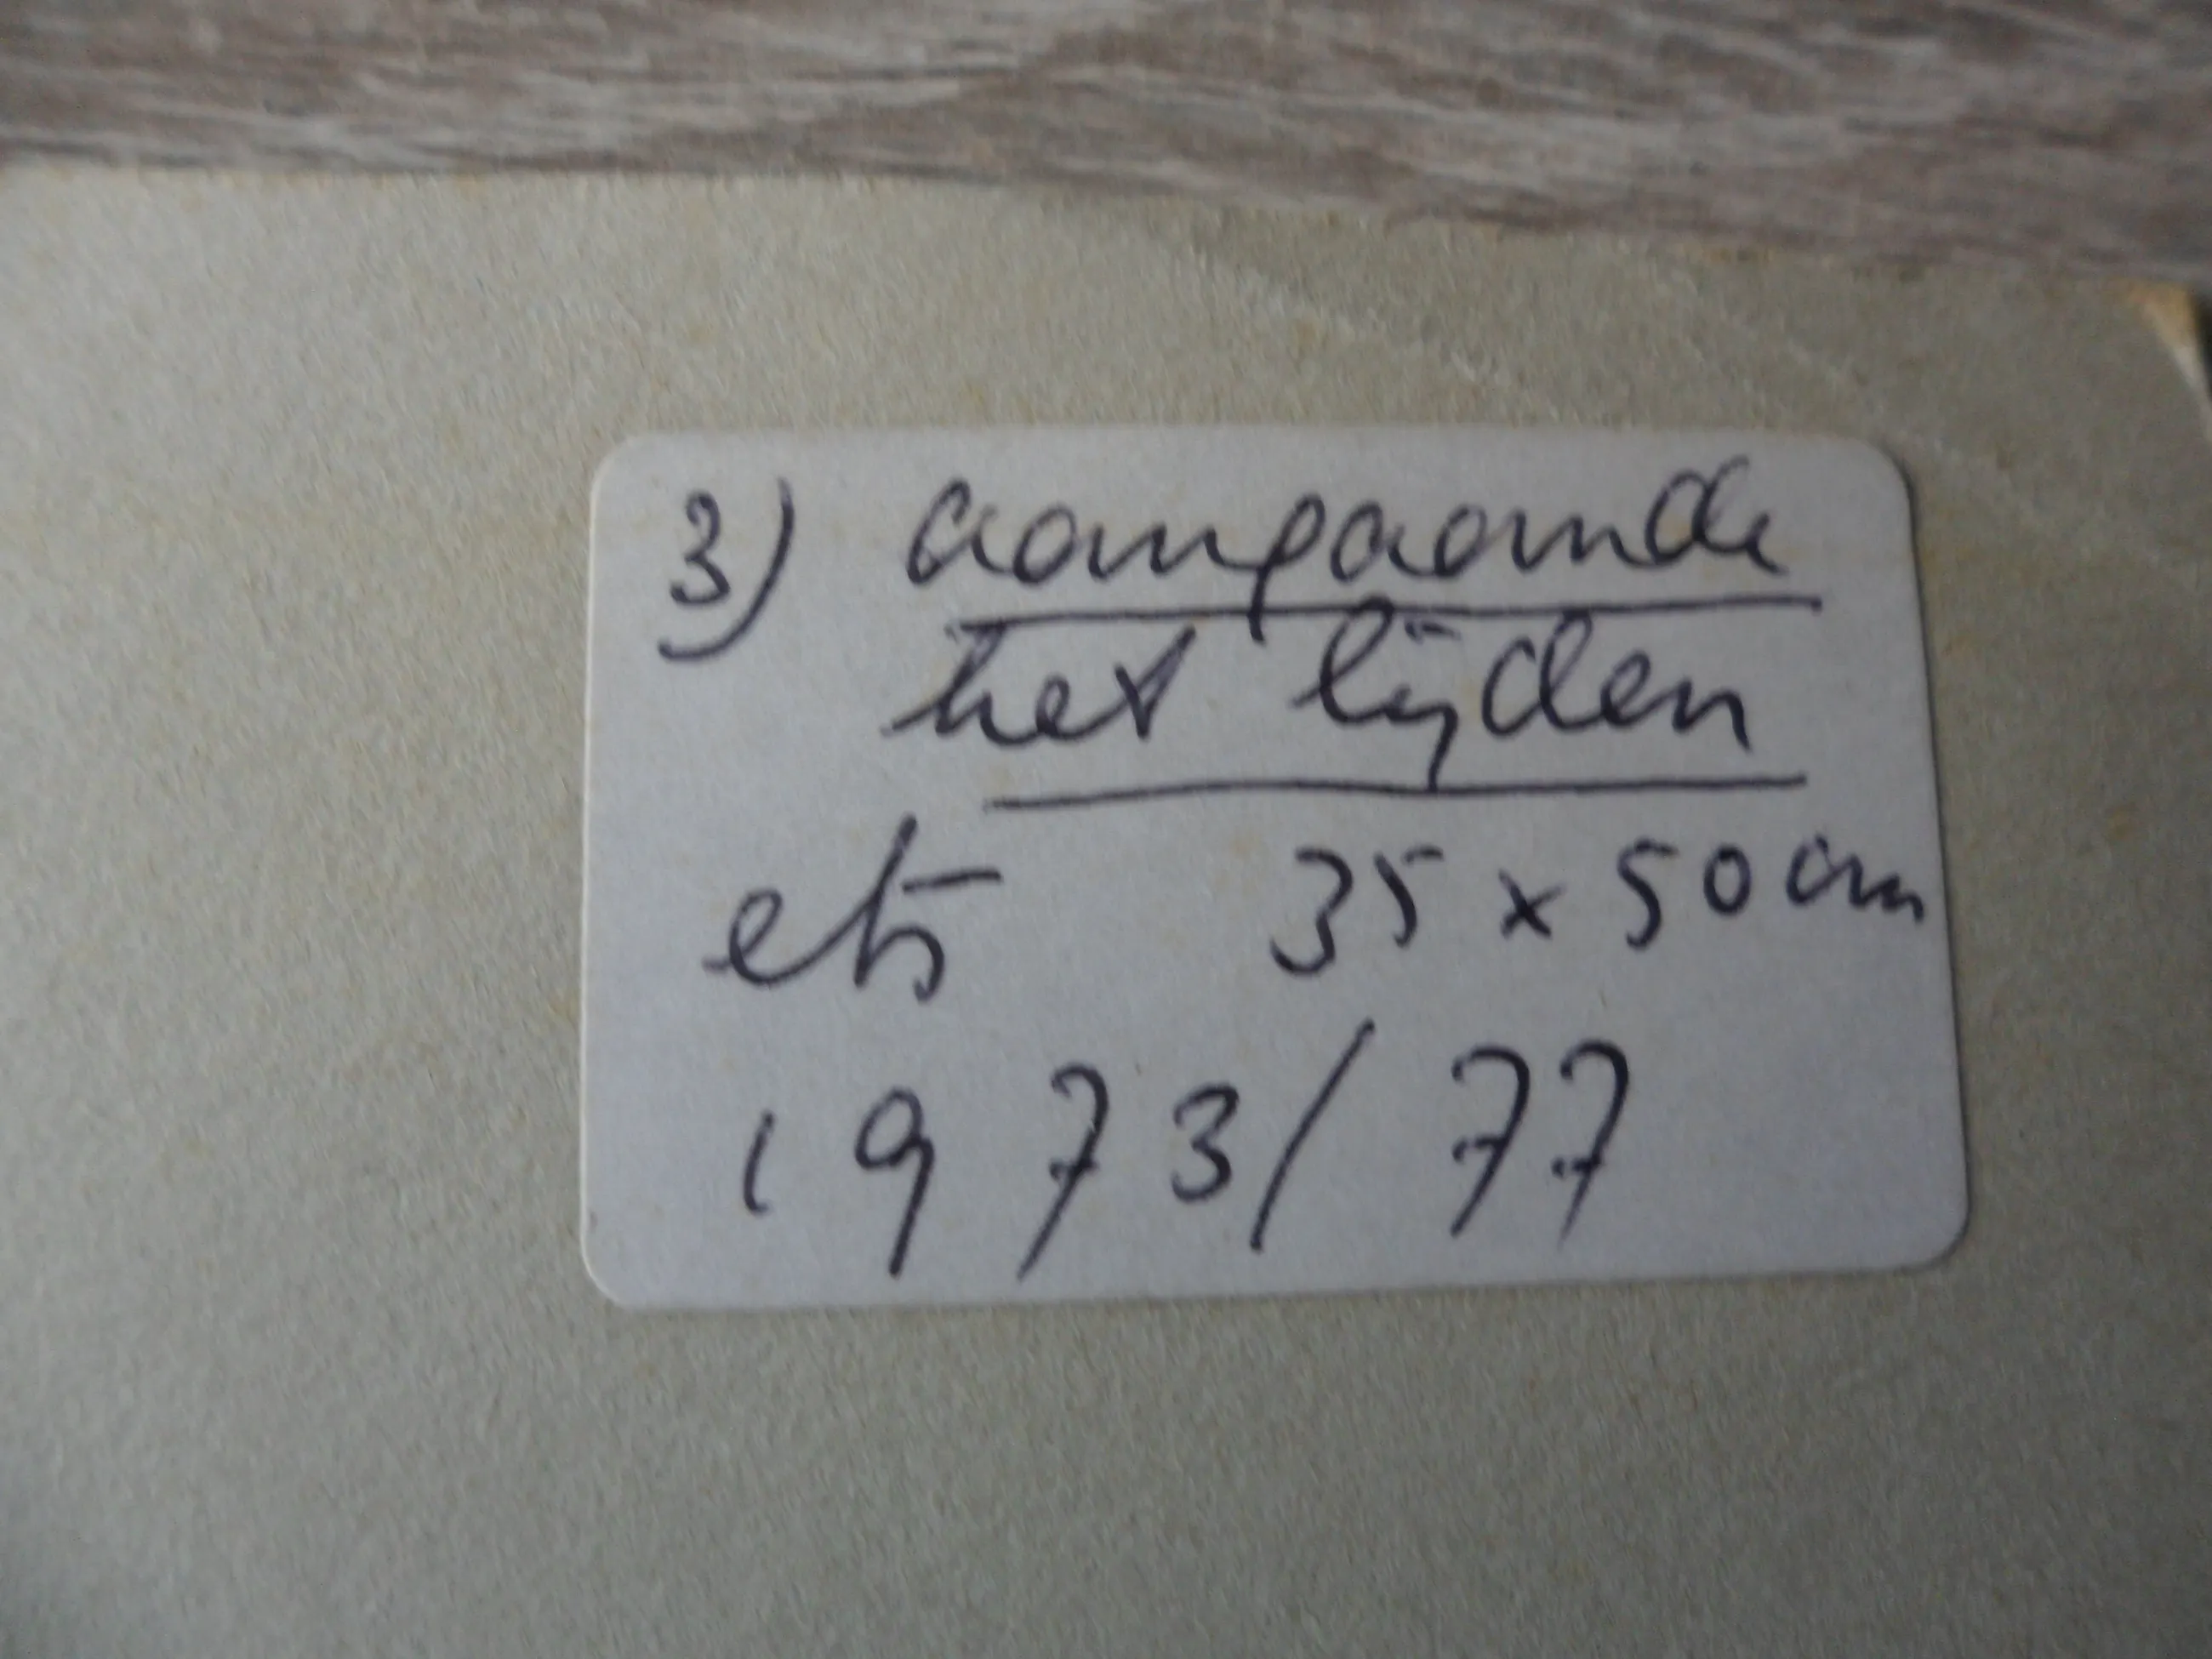 3) aangaande
het lijden
ets 35 x 50 cm
1973/77